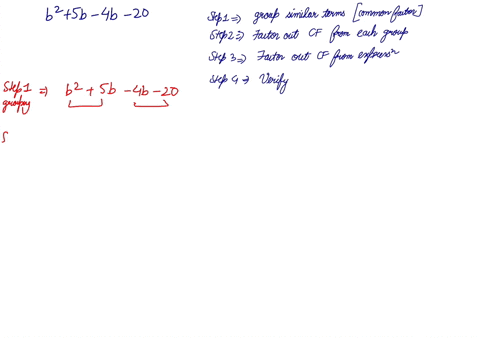 b² + 5b - 4b - 20
Step 1 ⇒ group similar terms [common factor]
Step 2 ⇒ Factor out CF from each group
Step 3 ⇒ Factor out CF from
Step 4 ⇒ Verify
Step 1 ⇒ b² + 5b - 4b - 20